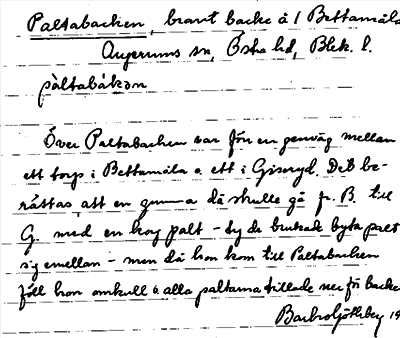 Paltabacken, brant backe å 1 Bettamåla
Augerums sn, Östra hd, Blek. l.
pàltabàkən
Över Paltabacken var förr en genväg mellan
ett torp i Bettamåla o. ett i Gisseryd. Det be-
rättas, att en gumma då skulle gå fr. B. till
G. med en korg palt - ty de brukade byta palt
sig emellan - men då hon kom till Paltabacken
föll hon omkull o. alla paltarna trillade ner för backen
Barbro Göthberg 19